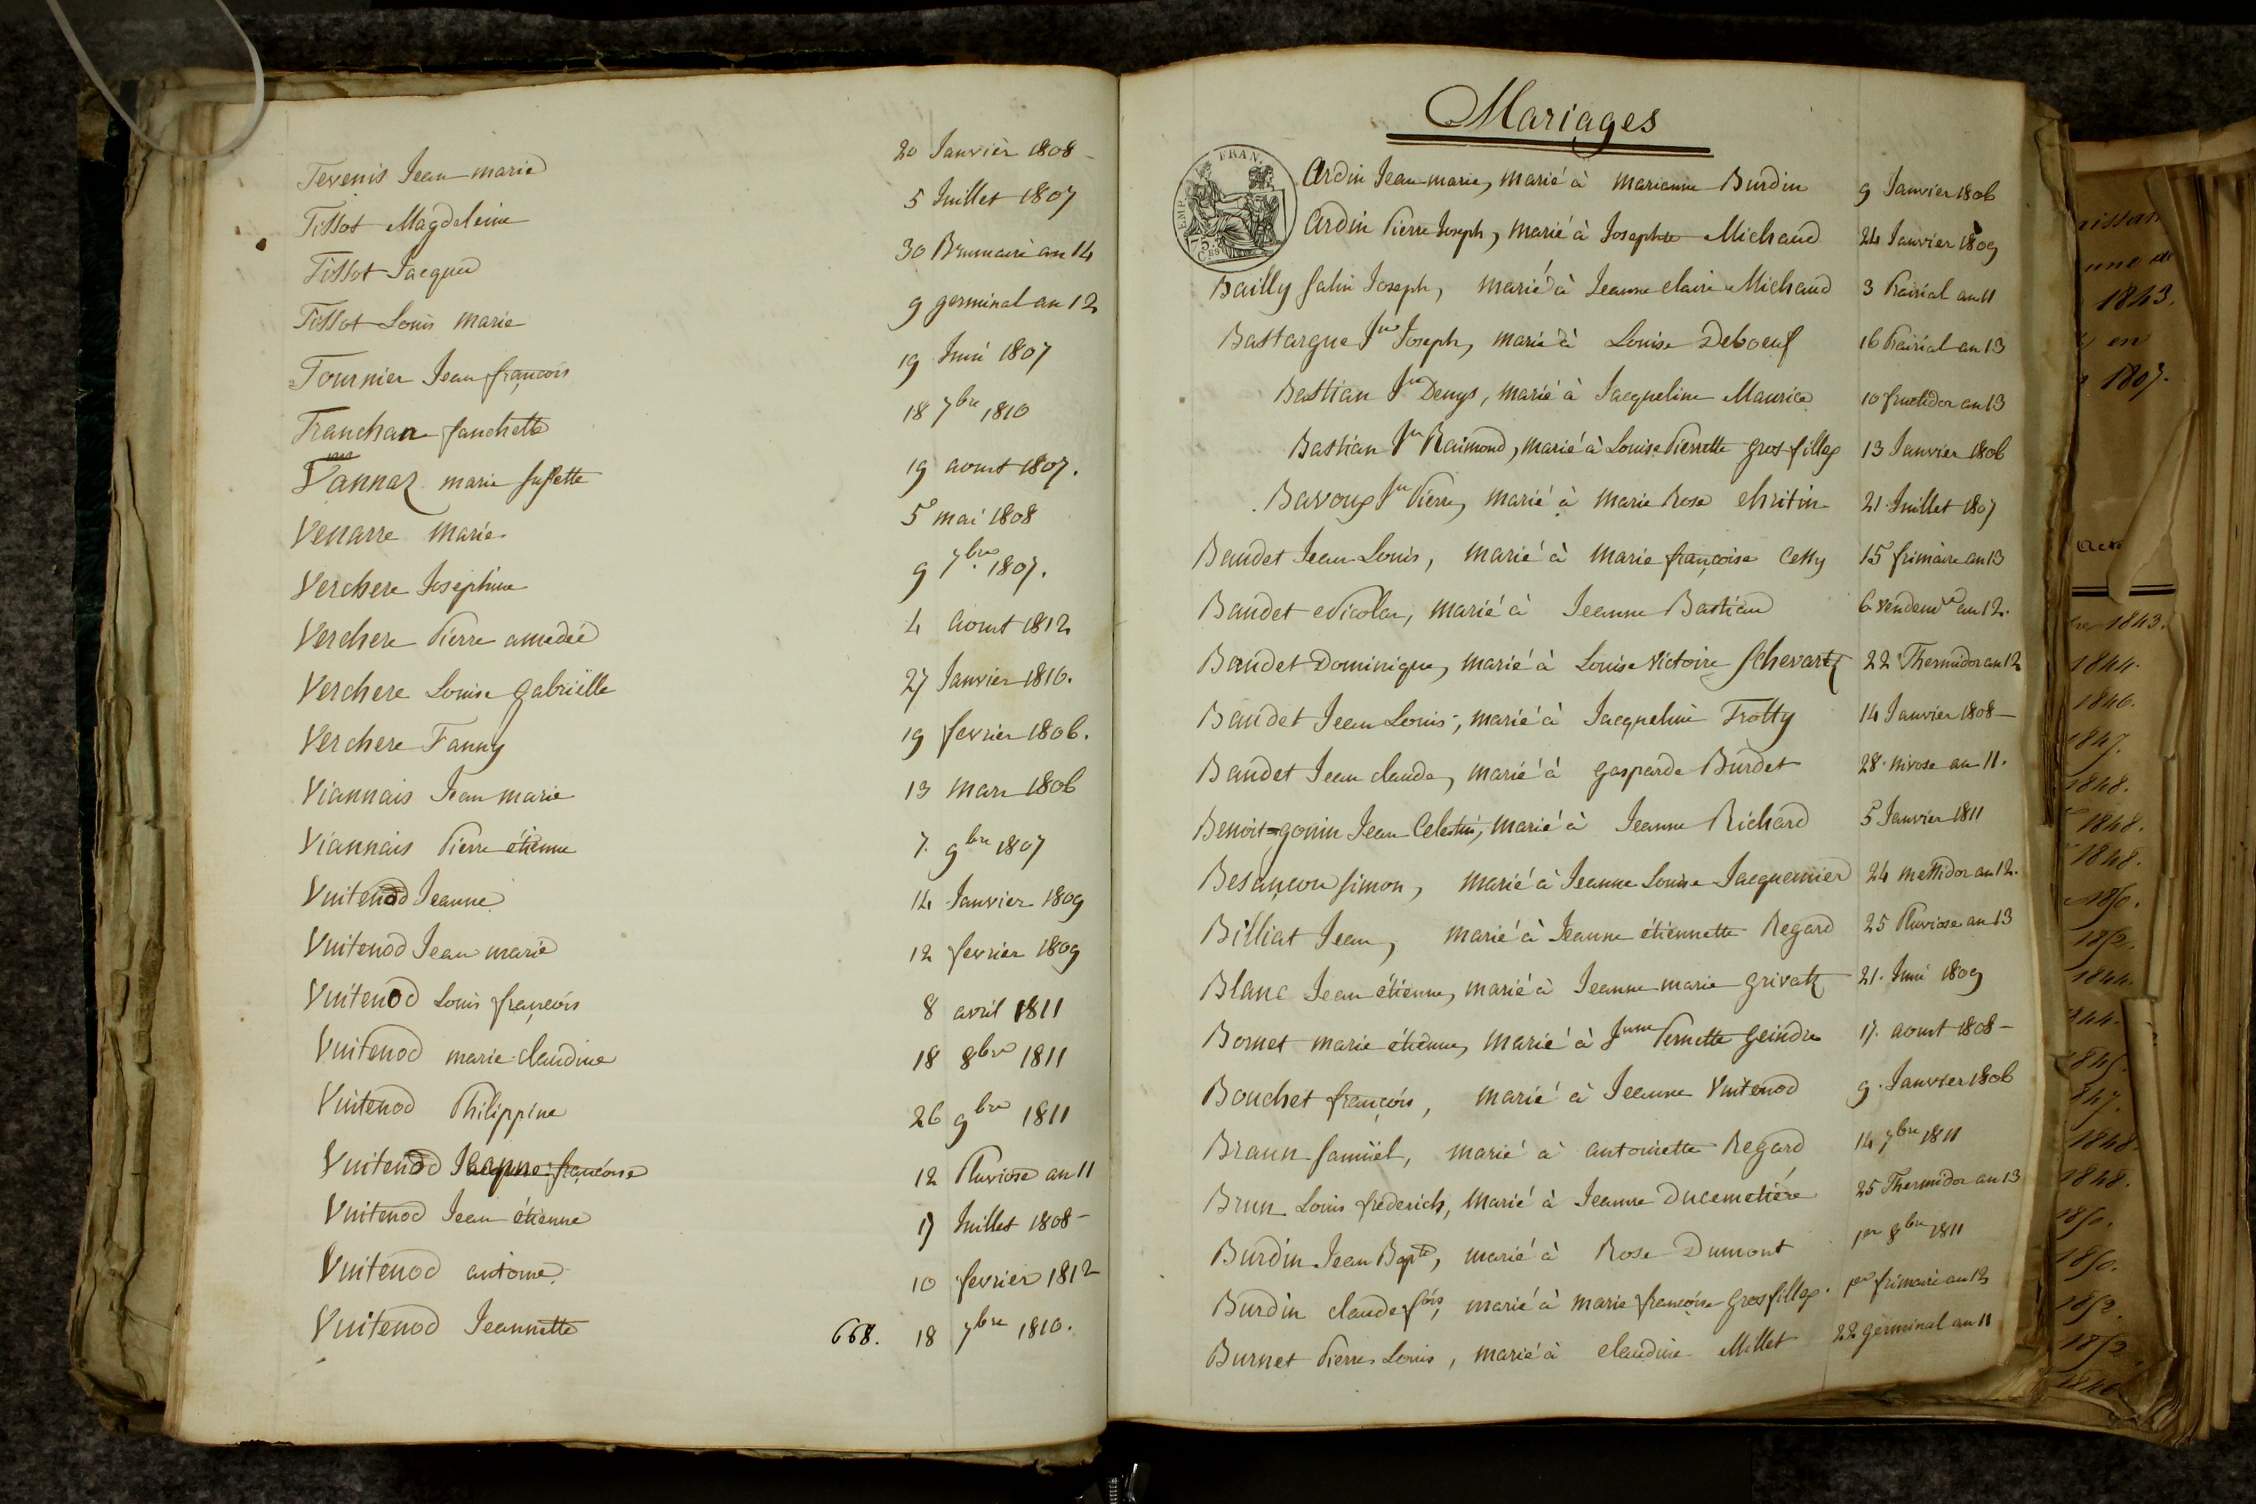 Tevenis Jean marie 20 Janvier 1808
Tissot Magdeleine 5 Juillet 1807
Tissot Jacques 30 Brumaire an 14
Tissot Louis Marie 9 germinal an 12
Fournier Jean françois 19 Juin 1807
Tranchan fanchette 18 7bre 1810
Vannaz marie Susette 19 aoust 1807.
Venarre Marie 5 mai 1808
Verchere Josephine 9 7bre 1807.
Verchere Pierre amedée 4 aoust 1812
Verchere Louise Gabrielle 27 Janvier 1810.
Verchere Fanny 19 fevrier 1806.
Viannais Jean marie 13 mars 1806
Viannais Pierre étienne 7. 9bre 1807
Vuitenod Jeanne 14 Janvier 1809
Vuitenod Jean marie 12 fevrier 1809
Vuitenod Louis françois 8 avril 1811
Vuitenod marie claudine 18 8bre 1811
Vuitenod Philippine 26 9bre 1811
Vuitenod françoise 12 Pluviose an 11
Vuitenod Jean étienne 17 Juillet 1808
Vuitenod antoine 10 fevrier 1812
Vuitenod Jeannette 668. 18 7bre 1810.
Mariages
EMP. FRAN.
75 CES
Ardin Jean marie, marié à marianne Burdin 9 Janvier 1806
Ardin Pierre Joseph, marié à Josephte Michaud 24 Janvier 1809
Bailly Salin Joseph, marié à Jeanne claire Michaud 3 Prairial an 11
Bastargue Joseph, marié à Louise Deboeuf 16 Prairial an 13
Bastian Denys, marié à Jacqueline Maurice 10 fructidor an 13
Bastian Raimond, marié à Louise Pierrette Grosfillex 13 Janvier 1806
Bavoux Pierre, marié à marie Rose chritin 21 Juillet 1807
Baudet Jean Louis, marié à marie françoise Cetty 15 frimaire an 13
Baudet Nicolas, marié à Jeanne Bastian 6 vendemre an 12.
Baudet Dominique, marié à Louise Victoire Schevartz 22 Thermidor an 12
Baudet Jean Louis, marié à Jacqueline Trotty 14 Janvier 1808
Baudet Jean claude, marié à gasparde Burdet 28. nivose an 11.
Benoit=gonin Jean Celestin, marié à Jeanne Richard 5 Janvier 1811
Besançon Simon, marié à Jeanne Louise Jacquemier 24 messidor an 12.
Billiat Jean, marié à Jeanne étiennette Regard 25 Pluviose an 13
Blanc Jean étienne, marié à Jeanne marie grivatz 21. Juin 1809
Bornet marie étienne, marié à Jnne Pernette Geindre 17. aoust 1808
Bouchet françois, marié à Jeanne Vuitenod 9. Janvier 1806
Braun Samüel, marié à antoinette Regard 14 7bre 1811
Brun Louis frederich, marié à Jeanne Ducemetière 25 Thermidor an 13
Burdin Jean Bapte, marié à Rose Dumont 1er 8bre 1811
Burdin claude fois, marié à marie françoise grosfillex. 1er frimaire an 12
Burnet Pierre Louis, marié à claudine Millet 22 germinal an 11
1843.
en
1807.
1843.
1844.
1846.
1847.
1848.
1848.
1848.
1850.
1852.
1844.
1848.
1848.
1850.
1850.
1852.
1852